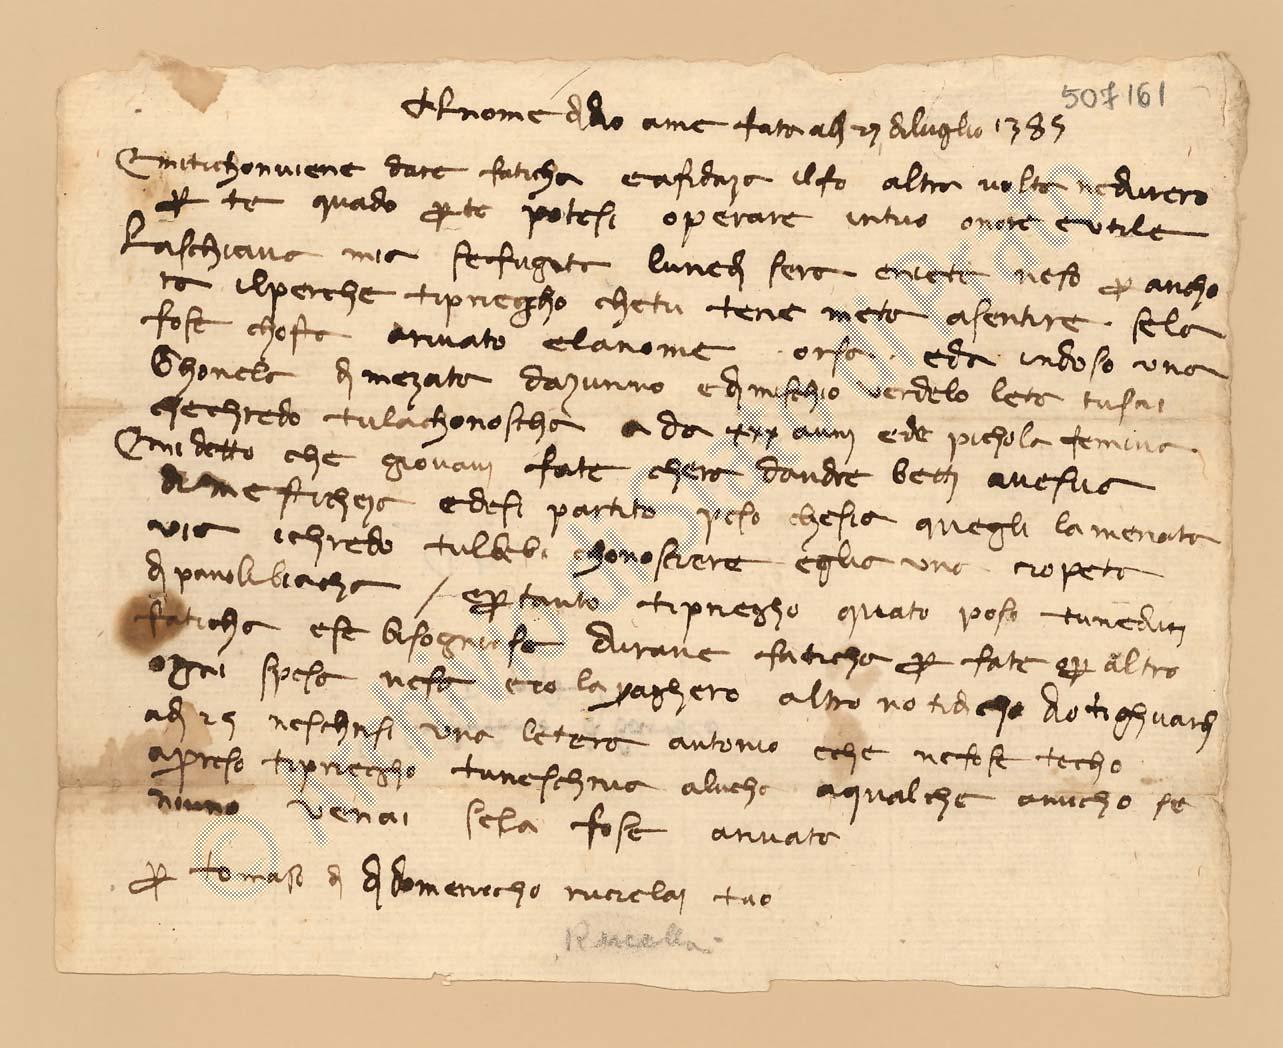 507161
Al nome di dio ame fata adi 27 di luglio 1385
E mi ti chonviene dare faticha e a fidanza il fo altra volta ne durero
per te quado per te potesi operare in tuo onore e utile
La schiava mia se fugita lunedi sera e niete ne so per ancho
ra il perche ti priegho che tu tene meta a sentire se la
fose chosta arivato e la nome orsa e da indoso una
Ghonela di mezata dazurino e di mischio verdelo leta tu sai
e chredo tu la chonoscha a da xxx anni ed e pichola femina
E mi detto che giovani fate chera dandre betti avesua
dimesticheza edesi partito peso che sia quegli la menata
via i chredo tu l debi chonosciere egli a una iropeta
di pano libiacha / e per tanto ti priegho quato poso tu ne dia
faticha e se bisogniose durane faticha per fate per altro
ogni spesa nesa e io la paghero altro no ti dicho dio ti ghuardi
adi 25 ne schrisi una letera antonio e che ne fose techo
apreso ti priegho tu ne schriva a lucha a qualche amicho se
niuno venai se la fose arivata
per tomaso di di domenicho rucielai tuo
Rucellai